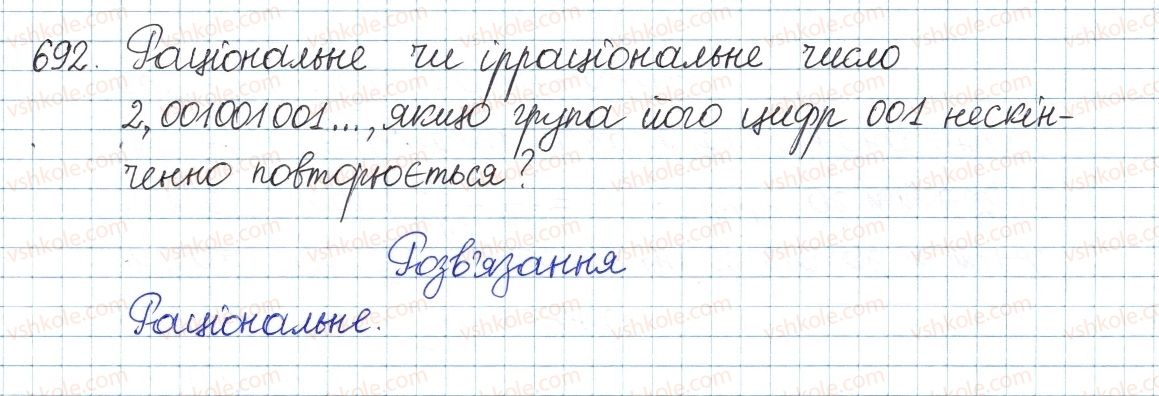 692. Раціональне чи ірраціональне число
2,001001001..., якщо група його цифр 001 нескін-
ченно повторюється?
Розв'язання
Раціональне.